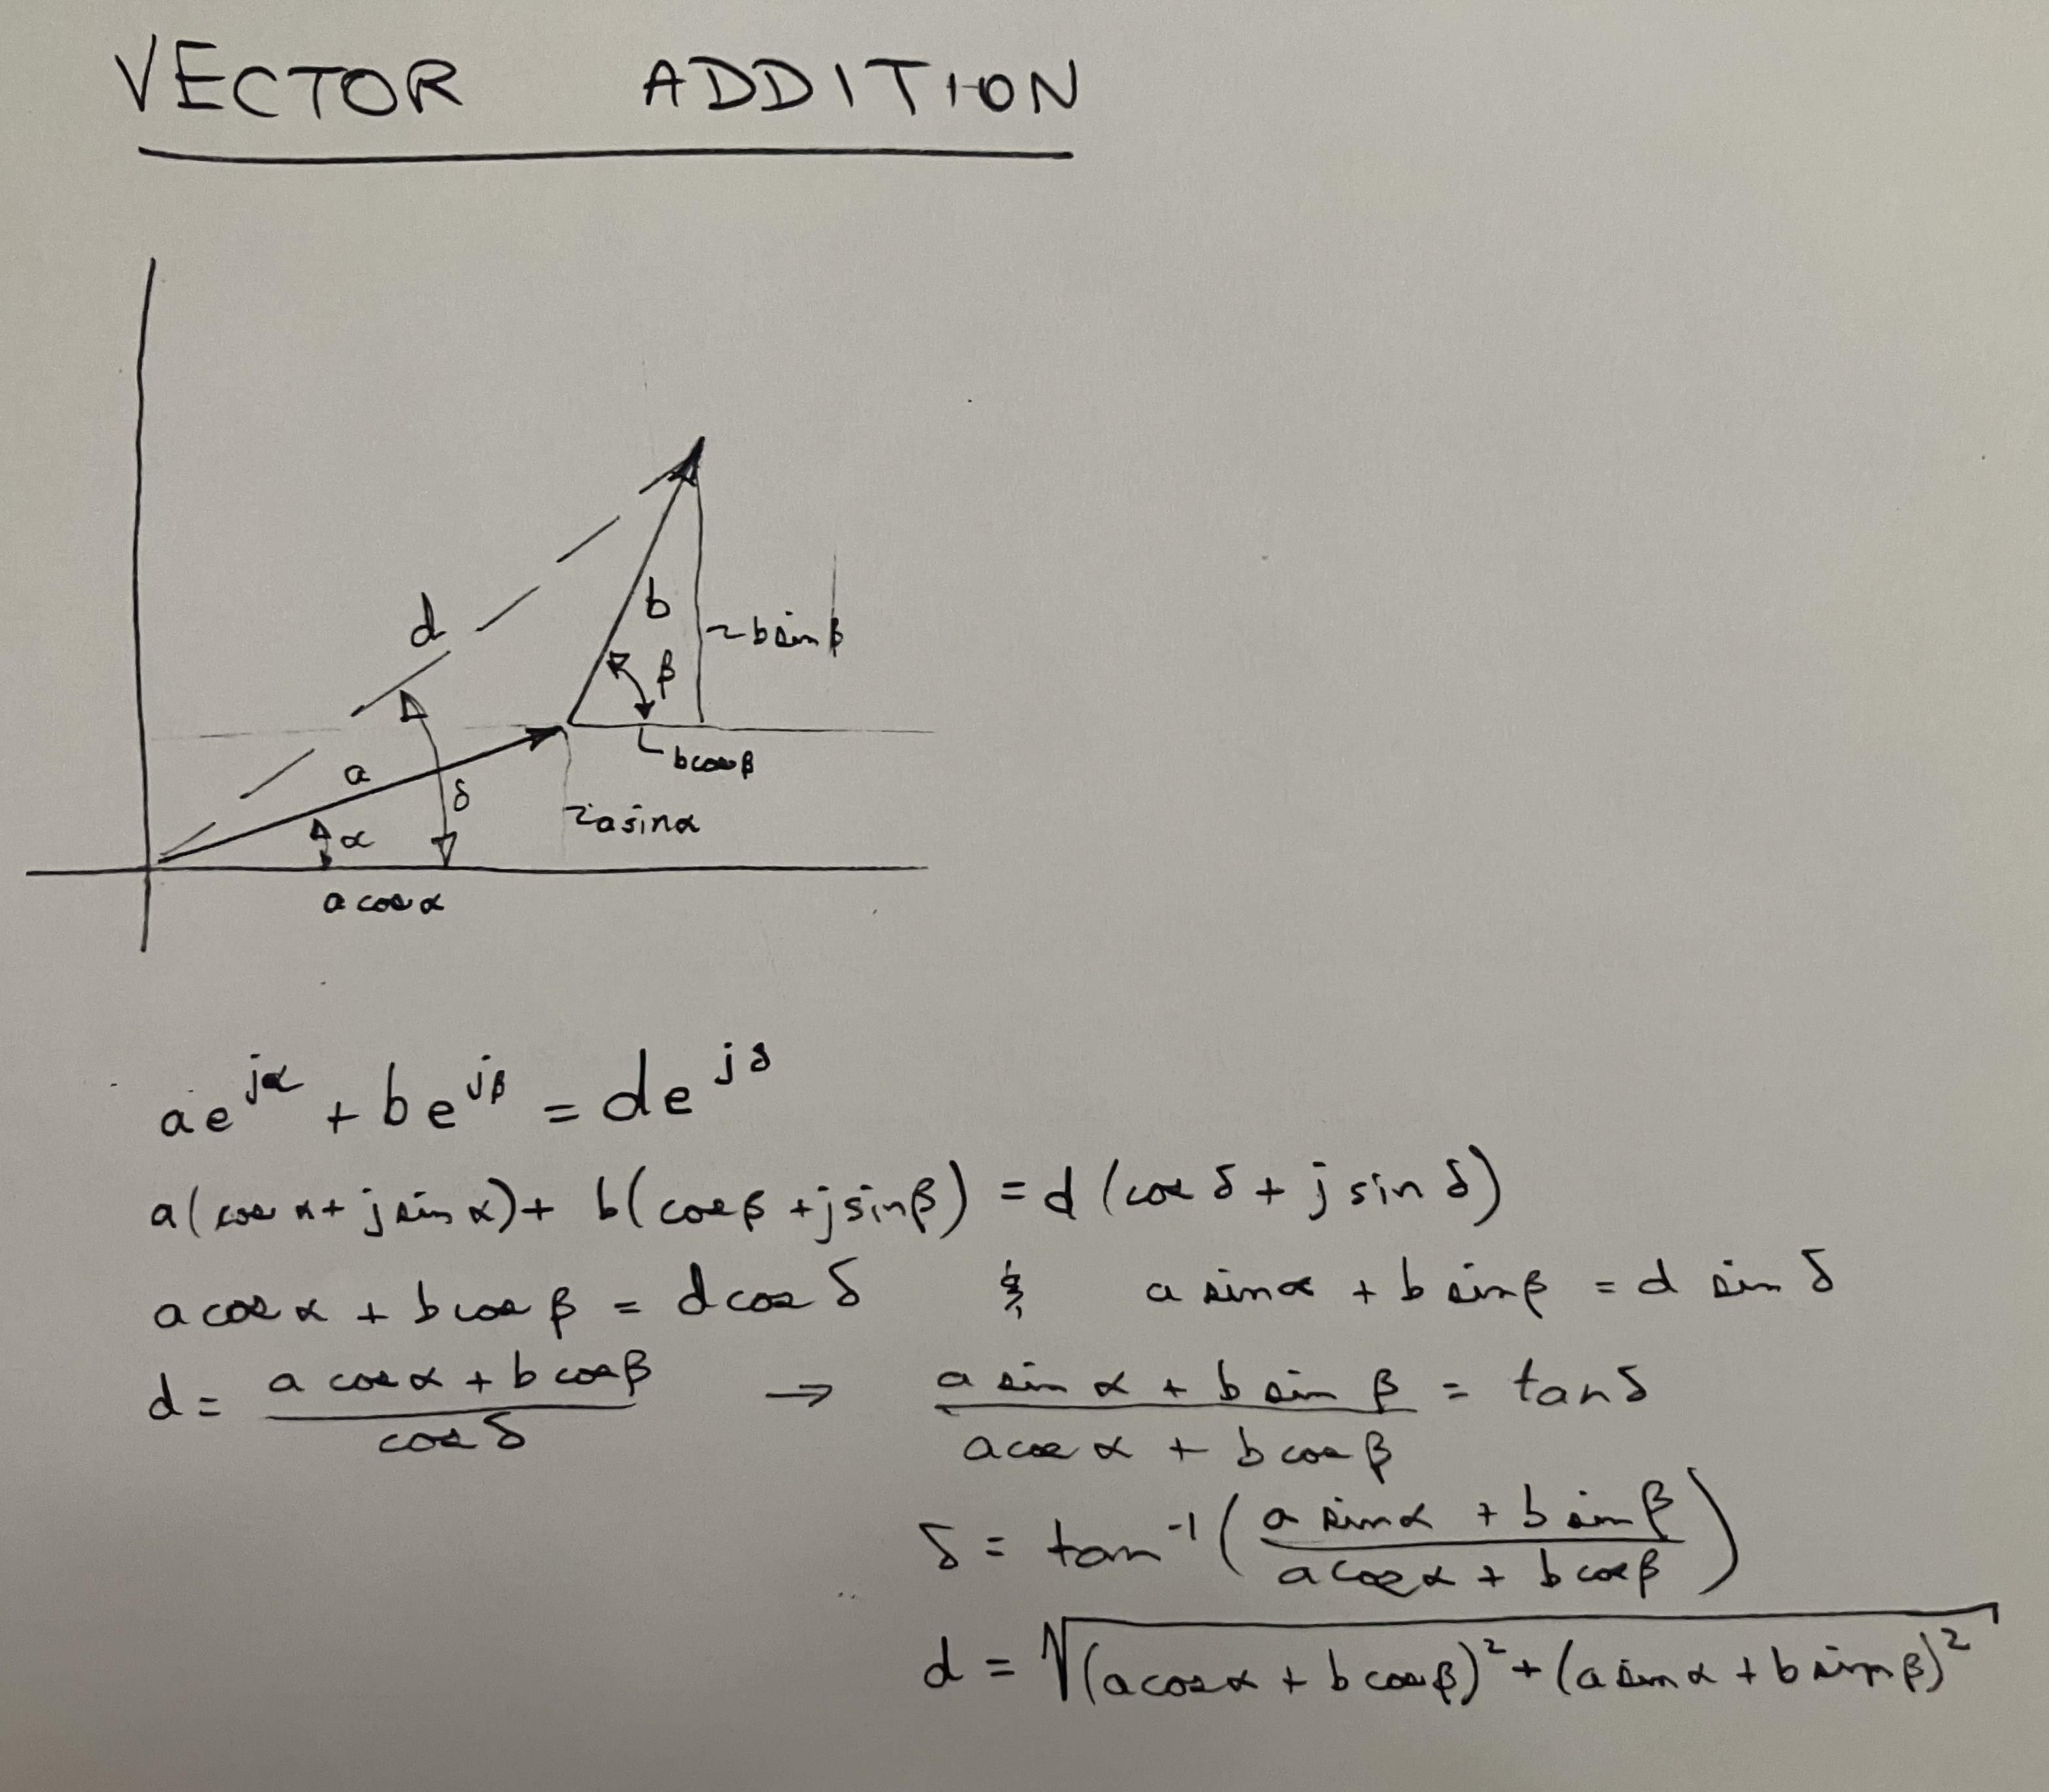 VECTOR ADDITION
d
b
~ b sin β
β
a
b cos β
δ
α
~ a sin α
a cos α
ae^{jα} + be^{jβ} = de^{jδ}
a(cos α + j sin α) + b(cos β + j sin β) = d(cos δ + j sin δ)
a cos α + b cos β = d cos δ & a sin α + b sin β = d sin δ
d = (a cos α + b cos β) / cos δ → (a sin α + b sin β) / (a cos α + b cos β) = tan δ
δ = tan^{-1}((a sin α + b sin β) / (a cos α + b cos β))
d = √((a cos α + b cos β)² + (a sin α + b sin β)²)